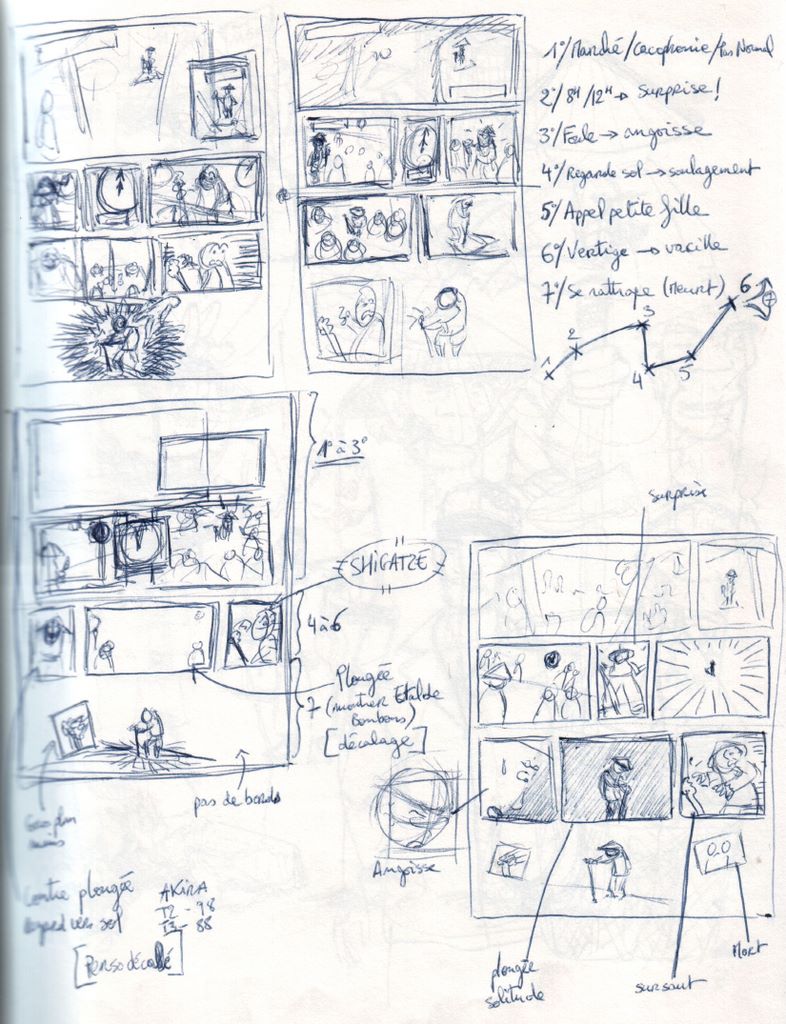 1°/ Marché / Cacophonie / Pas Normal
2°/ 8H / 12H → Surprise !
3°/ Foule → angoisse
4°/ Regarde sol → soulagement
5°/ Appel petite fille
6°/ Vertige → vacille
7°/ Se rattrape (Meurt)
1 2 3 4 5 6 7
1° à 3°
SHIGATZE
4 à 6
Plongée
7 (montrer Etal de
Bonbons)
[décalage]
pas de bords
Gros plan
mains
Contre plongée
regard vers sol
[Perso décalé]
AKIRA
T2 - 98
T3 - 88
surprise
Angoisse
plongée
solitude
sursaut
Mort